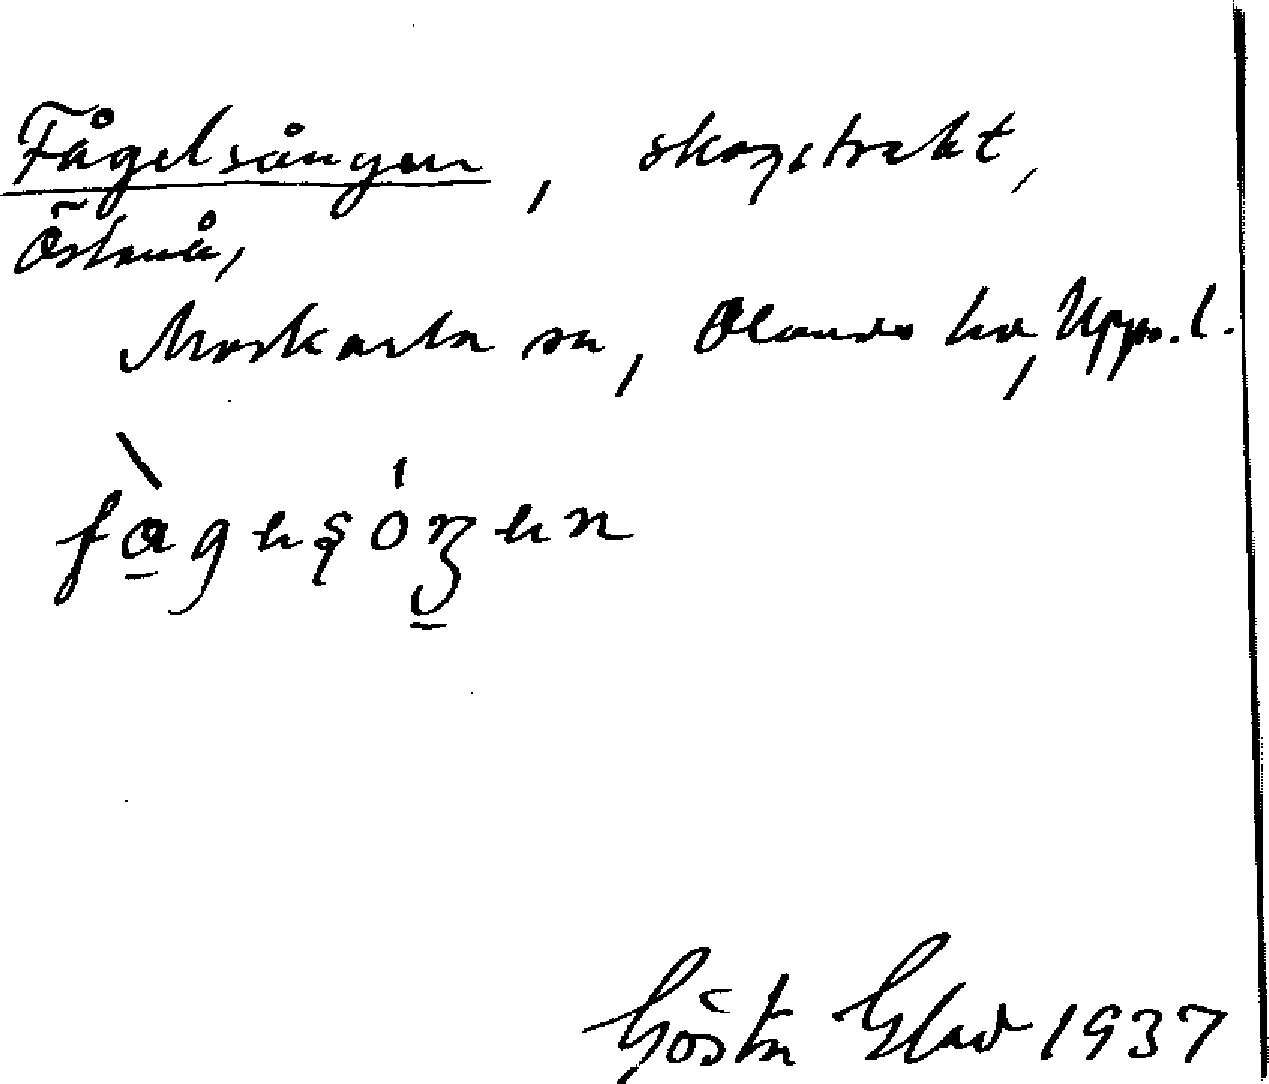 Fågelsången, skogstrakt,
Östanå,
Morkarla sn, Olands hd, Uppl.
Gösta Glad 1937